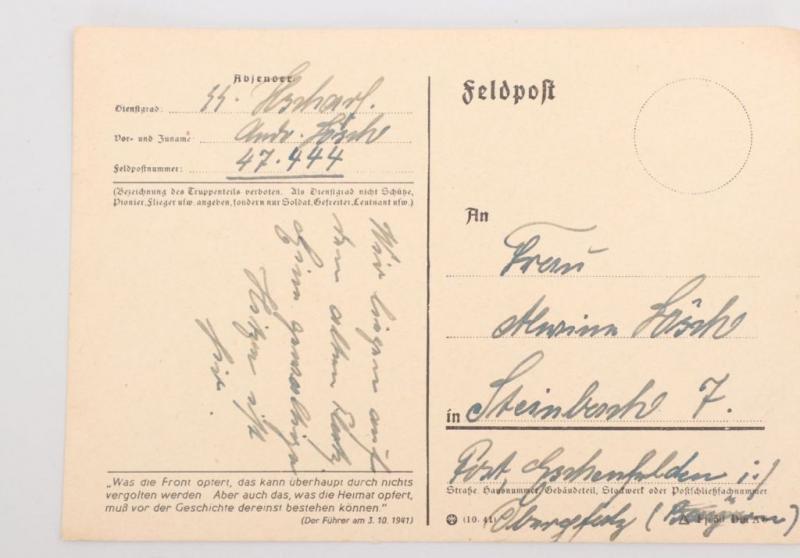 Absender
Dienstgrad: SS. Uscharf.
Vor- und Zuname Andr. Lösch
Feldpostnummer: 47.444
(Bezeichnung des Truppenteils verboten. Als Dienstgrad nicht Schütze,
Pionier, Flieger usw. angeben, sondern nur Soldat, Gefreiter, Leutnant usw.)
Wir liegen auf
dem alten Platz
Eine gewaltige
Hitze ist
hier.
„Was die Front opfert, das kann überhaupt durch nichts
vergolten werden Aber auch das, was die Heimat opfert,
muß vor der Geschichte dereinst bestehen können.“
(Der Führer am 3. 10. 1941)
Feldpost
An
Frau
Alwine Lösch
in Steinbach 7.
Post, Eschenfelden i./
Straße, Hausnummer, Gebäudeteil, Stockwerk oder Postschließfachnummer
Oberpfalz (Bayern)
(10. 41)